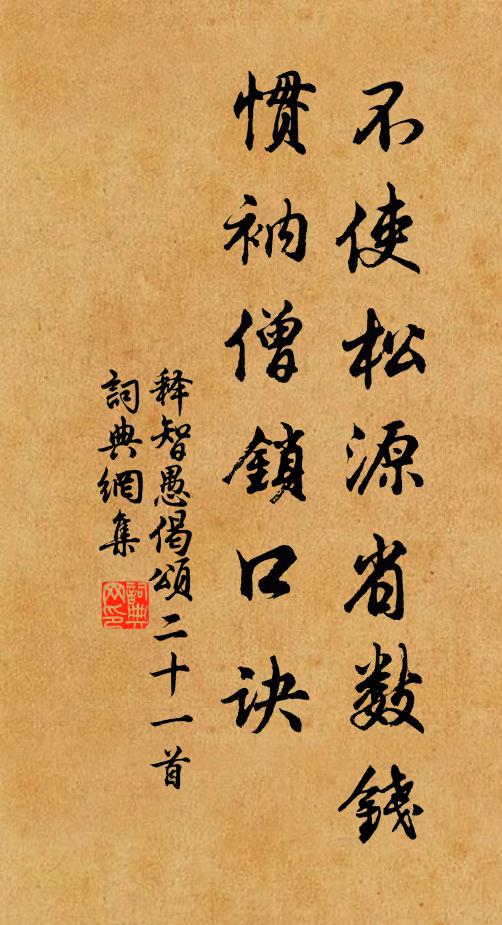 不使松源省数錢
慣衲僧鎖口訣
释智愚偈頌二十一首
詞典網集
詞典网印